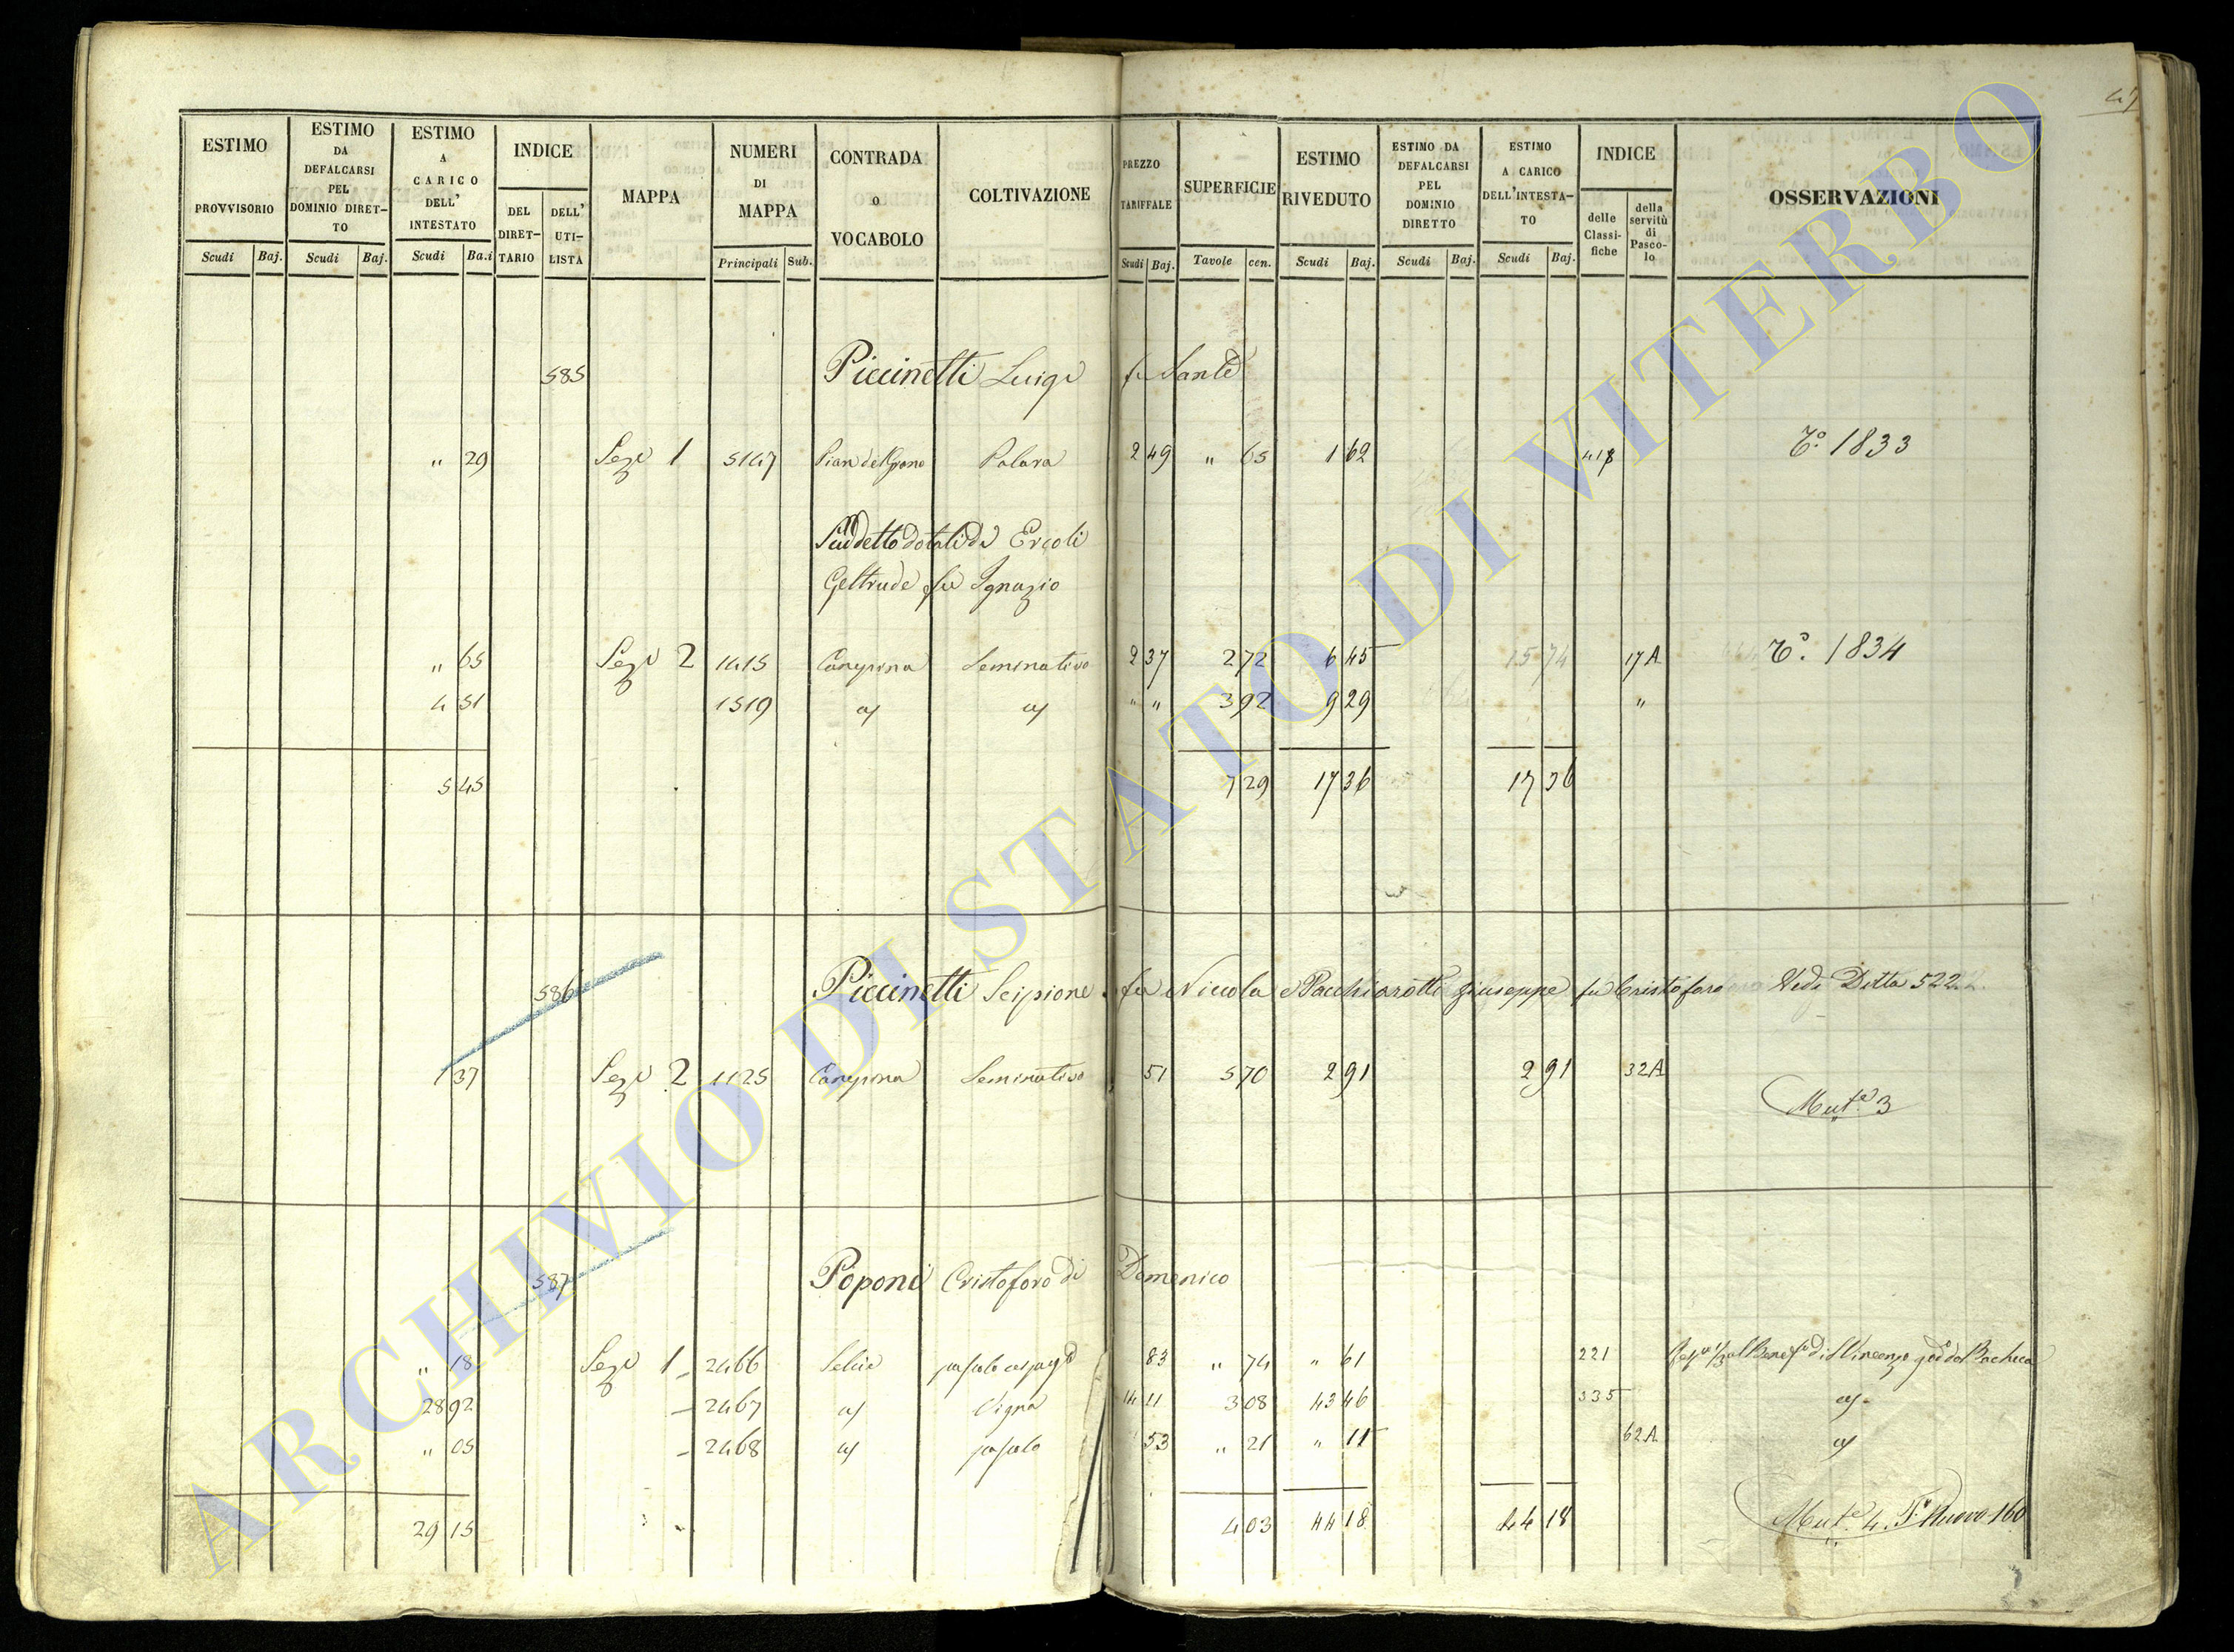 47
ESTIMO PROVVISORIO Scudi Baj.
ESTIMO DA DEFALCARSI PEL DOMINIO DIRET-TO Scudi Baj.
ESTIMO A CARICO DELL' INTESTATO Scudi Ba.i
INDICE DEL DIRET-TARIO DELL' UTI-LISTA
MAPPA
NUMERI DI MAPPA Principali Sub.
CONTRADA O VOCABOLO
COLTIVAZIONE
PREZZO TARIFFALE Scudi Baj.
SUPERFICIE Tavole cen.
ESTIMO RIVEDUTO Scudi Baj.
ESTIMO DA DEFALCARSI PEL DOMINIO DIRETTO Scudi Baj.
ESTIMO A CARICO DELL'INTESTA-TO Scudi Baj.
INDICE delle Classi-fiche della servitù di Pasco-lo
OSSERVAZIONI
585 Piccinetti Luigi fu Sante
" 29 Sez.e 1 5147 Pian del Grano Polara 2 49 " 65 1 62 418 T.o 1833
Suddetto dotali di Ercoli
Geltrude fu Ignazio
" 65 Sez.e 2 1415 Canepina Seminativo 2 37 2 72 6 45 15 74 17A T.o 1834
4 51 1519 a/ a/ " " 3 92 9 29 "
5 45 7 29 17 36 17 36
586 Piccinetti Scipione fu Niccola e Pacchiarotti Giuseppe fu Cristoforo Vedi Ditta 522
1 37 Sez.e 2 1125 Canepina Seminativo 51 5 70 2 91 2 91 32A
Mut.e 3
587 Poponi Cristoforo di Domenico
" 18 Sez.e 1 2466 Selcie pascolo 83 " 74 " 61 221 al Benef.o di S Vincenzo Bacheca
28 92 2467 a/ Vigna 14 11 3 08 43 46 335 a/
" 05 2468 a/ pascolo 53 " 21 " 11 62A a/
29 15 4 03 44 18 44 18 Mut.e 4. T.o Nuovo 160
ARCHIVIO DI STATO DI VITERBO